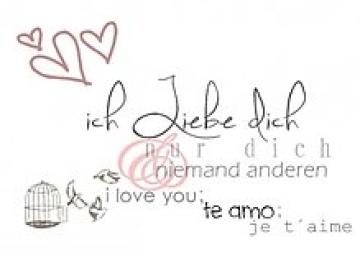 ich Liebe dich
nur dich
&
niemand anderen
i love you;
te amo;
je t´aime